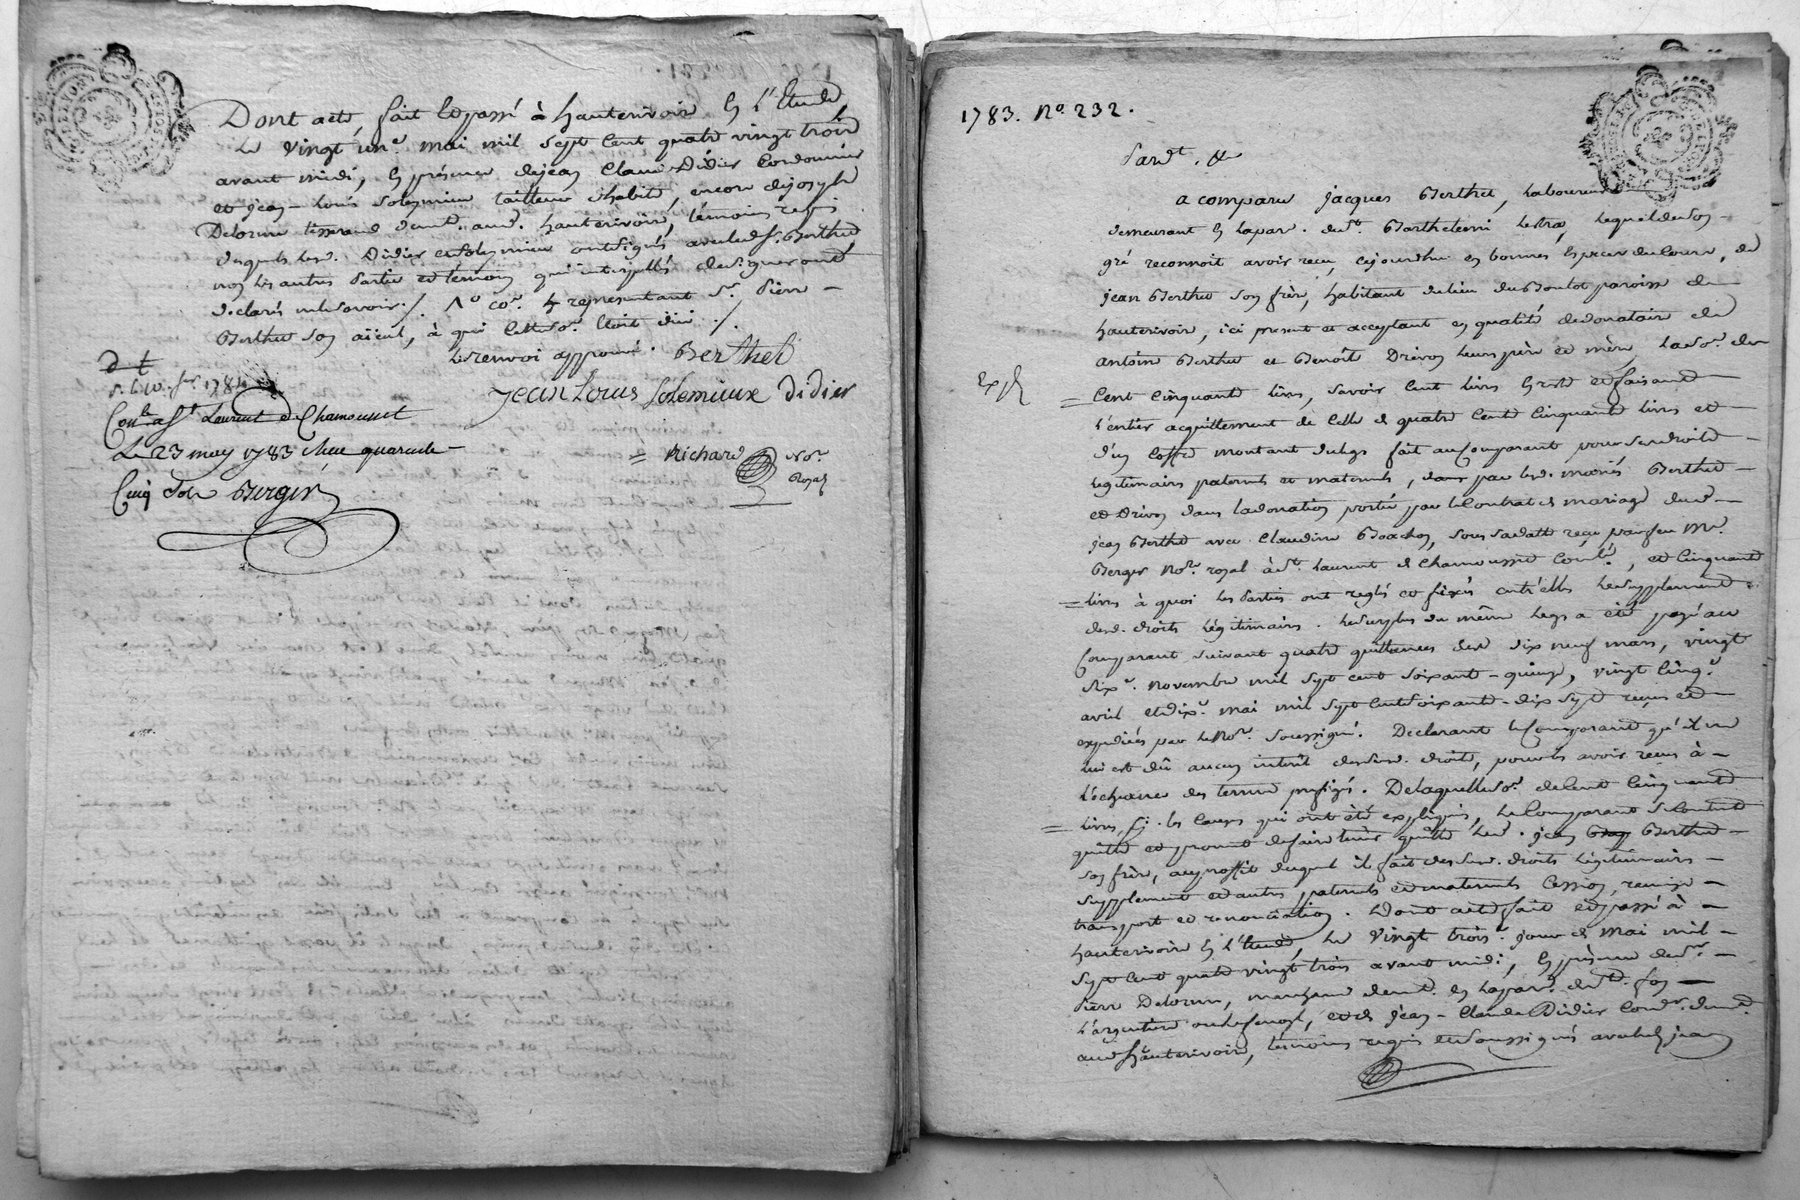 Dont acte, fait et passé à hauterivoir En l'Etude
Le vingt un.e mai mil sept cent quatre vingt trois
avant midi, En présence de jean Claude Didier Cordonnier
et jean-Louis Solemieu tailleur d'habits, encore de joseph
Delorme tisserand demt. aud. hauterivoir, témoins requis
desquels lesd. Didier et Solemieu ont signés avec led. Sr. Berthet
non les autres partie et temoin qui interpellés de signer ont
declarés ne le savoir ./. representant Sr. Pierre
Berthet son aieul, à qui cette so. étoit due ./.
Le renvoi approuvé. Berthet
Jean Louis Solemieux Didier
d t
Conlé. a St Laurent de Chamousset
Le 23 may 1783 Reçu quarente
Cinq sols Berger
= Richard Nore.
Royal
1783. No. 232.
Pardt. &
a comparu jacques Berthet, laboureur
demeurant En la par. de St. Barthelemi Lestra, lequel de son
gré reconnoit avoir recu, cejourdhui en bonnes Especes du cours, de
jean Berthet son frère, habitant du lieu du Boulot paroisse de
hauterivoir, ici present et acceptant en qualité de donataire de
antoine Berthet et Benoîte Drivon leurs père et mère, la so. de
= Cent cinquante livres, savoir cent livres En reste et faisant
l'entier acquittement de celle de quatre cent cinquante livres et
d'un coffre montant du legs fait au Comparant pour ses droits
légitimaires paternels et maternels, dans par lesd. mariés Berthet
et Drivon dans la donation portée par le Contrat de mariage dud.
jean Berthet avec Claudine Boachon, sous sa datte reçu par feu Me.
Berger Nore. royal à St. Laurent de Chamousset Conlé., et cinquante
= livres à quoi les Parties ont reglé et fixés entr'elles le supplément
desd. droits légitimaires. Le surplus du même legs a été payé au
Comparant suivant quatre quittances des dix neuf mars, vingt
six.e novembre mil sept cent soixante-quinze, vingt cinq.e
avril et dix.e mai mil sept cent soixante-dix sept reçues et
expediées par le Nore. soussigné. Declarant le Comparant qu'il ne
lui est dû aucun interêt desdits droits, pour les avoir reçus à
l'echeance des termes prefigés. De laquelle so. de cent cinquante
= livres, les causes qui ont été expliquées, le Comparant se contente
quitte et promet de faire tenir quitte led. jean Berthet
son frère, au proffit duquel il fait desdits droits légitimaires
supplement et autres paternels et maternels Cession, remise
transport et renonciation. Dont acte fait et passé à
hauterivoire En l'Etude, Le vingt trois.e jour de mai mil
sept cent quatre vingt trois avant midi, En présence de Sr.
Pierre Delorme, marchand demt. En la par. de St. foy
l'argentiere et de jean-Claude Didier Cordr. demt.
aud. hauterivoire, témoins requis et soussignés avec led. jean